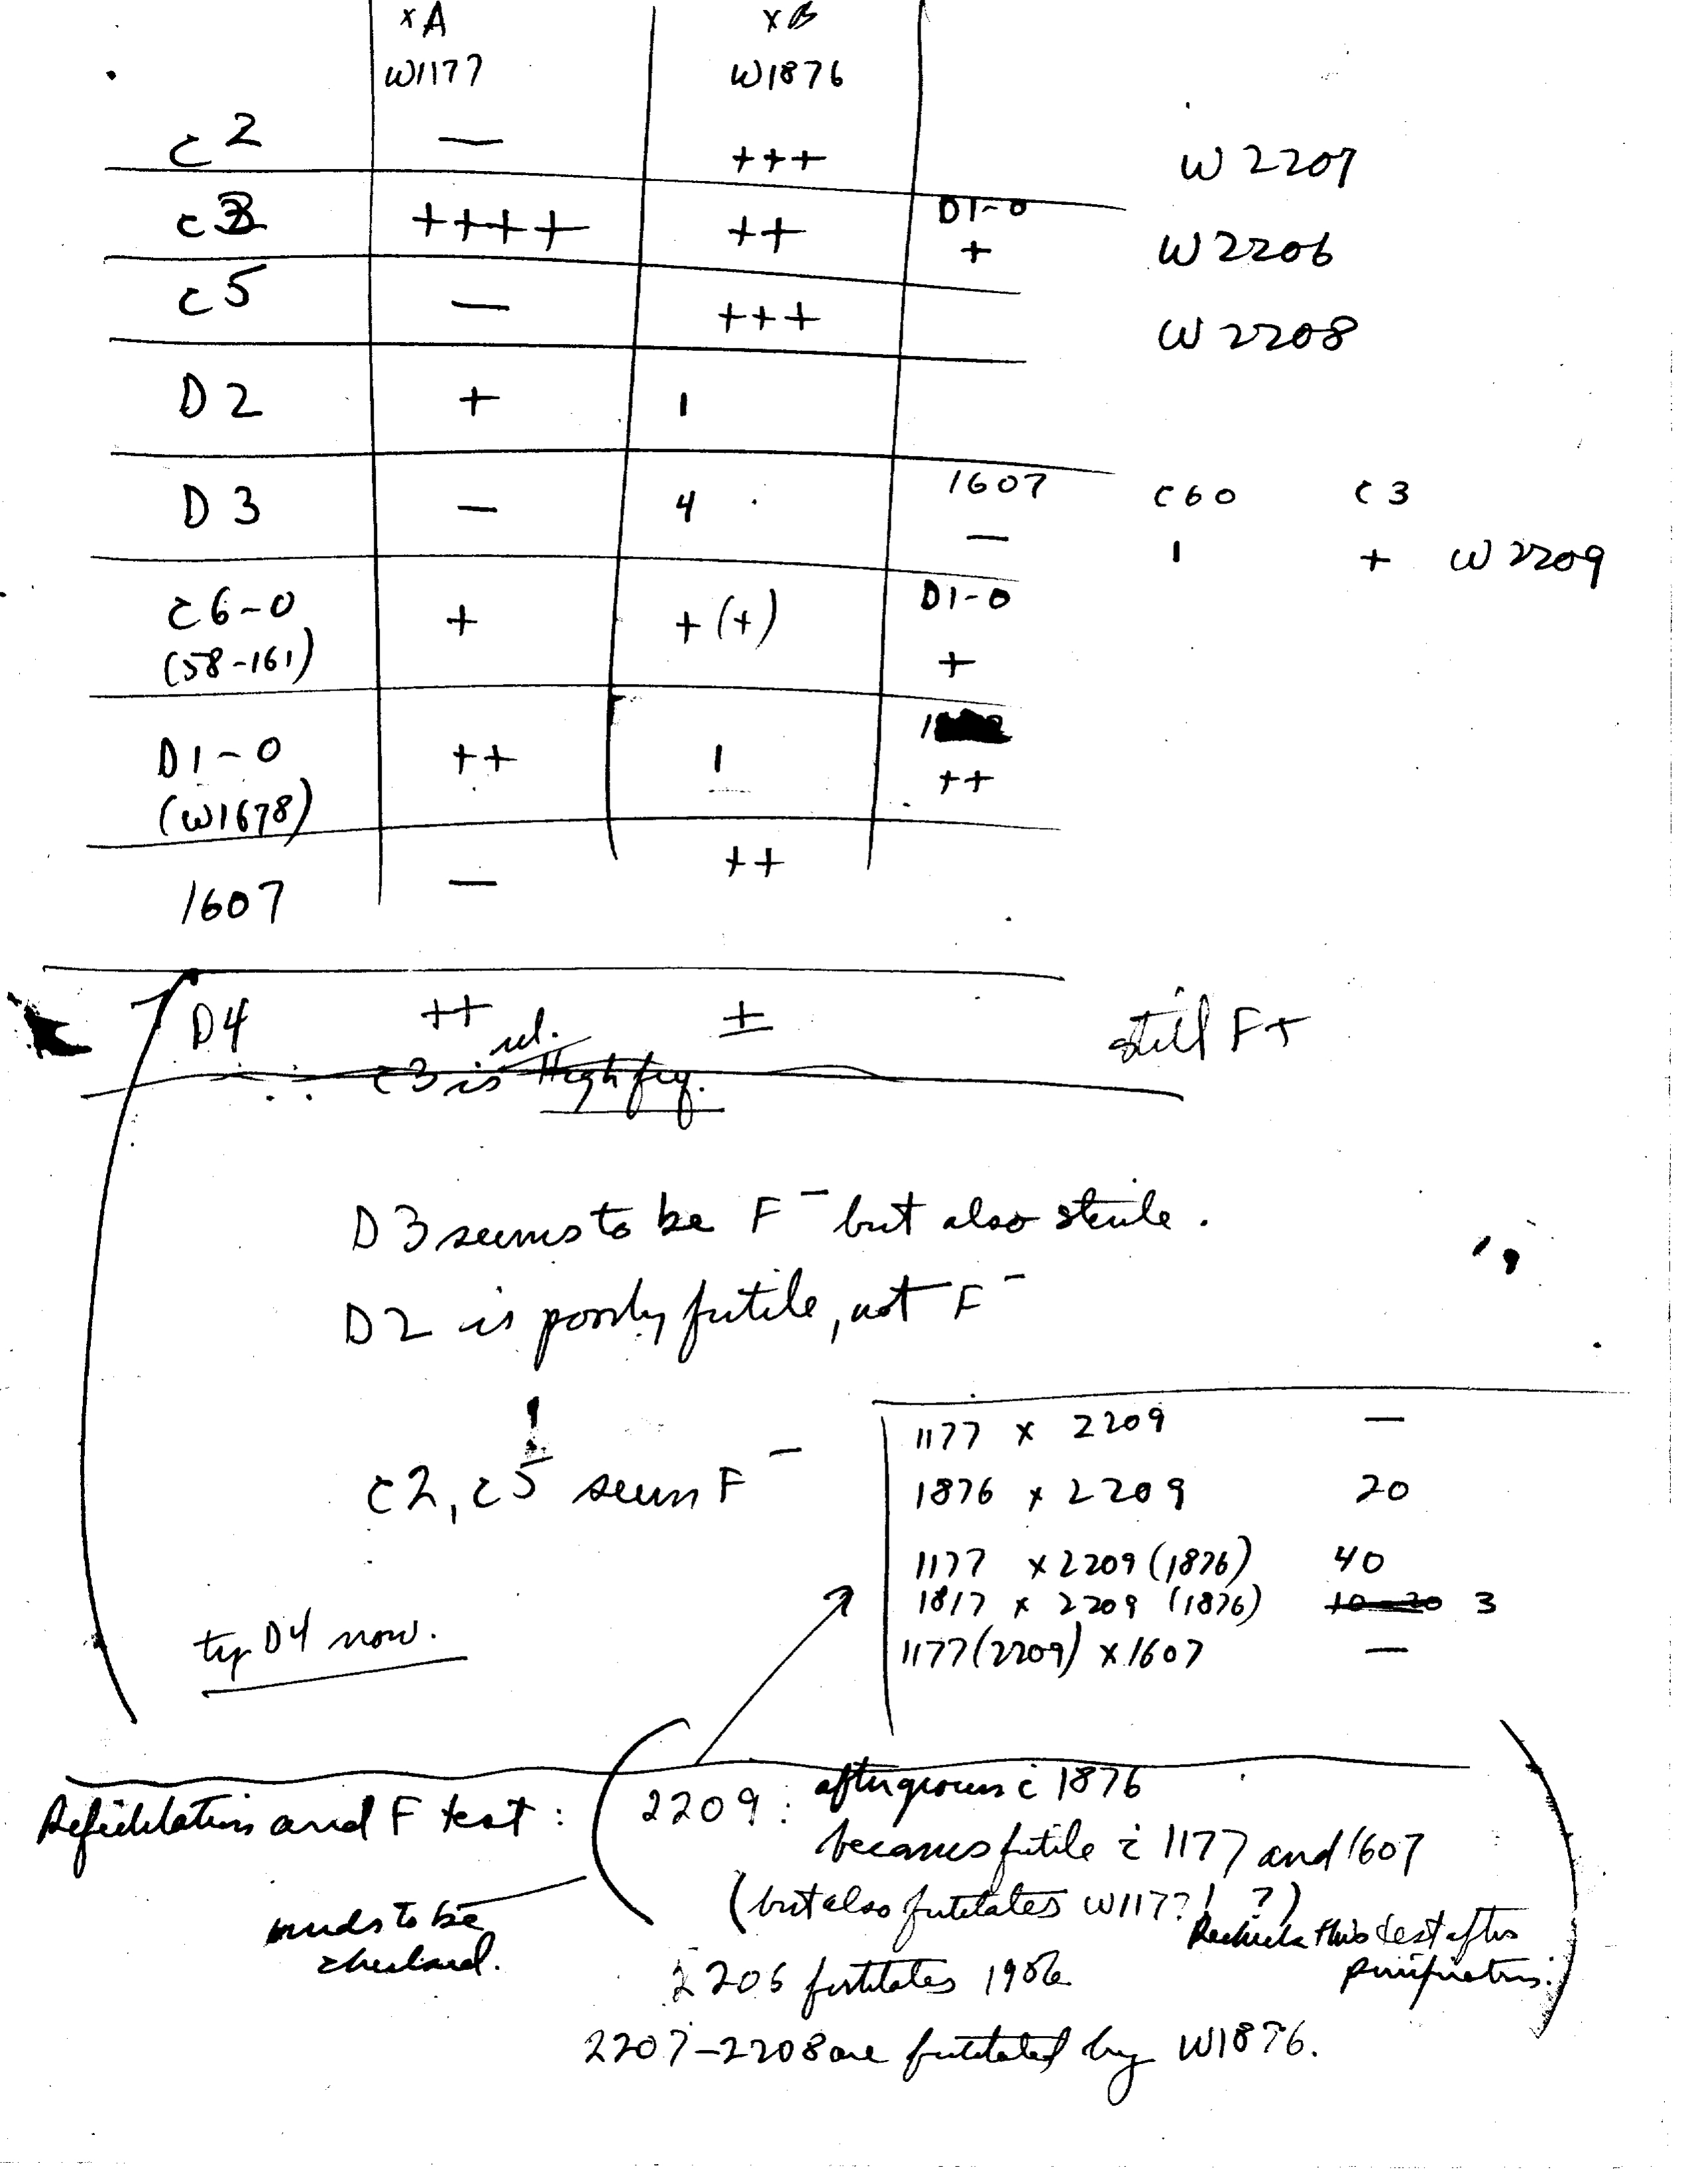 xA xB
W1177 W1876
c2 — +++ W2207
c3 ++++ ++ D1-0 + W2206
c5 — +++ W2208
D2 + 1
D3 — 4 1607 — c60 1 c3 + W2209
c6-0 + +(+) D1-0 +
(58-161)
D1-0 ++ 1 ++
(W1678)
1607 — ++
D4 ++ ± still F+
∴ c3 is rel. High fq.
D3 seems to be F⁻ but also sterile.
D2 is poorly fertile, not F⁻
c2, c5 seem F⁻
try D4 now.
1177 x 2209 —
1876 x 2209 20
1177 x 2209 (1876) 40
1817 x 2209 (1876) 10-20 3
1177(2209) x 1607 —
Refertilization and F test:
needs to be
checked.
2209: after grown c̄ 1876
becomes fertile c̄ 1177 and 1607
(but also fertilates W1177! ?)
Recheck this test after
purification.
2206 fertilates
2207-2208 are fertilated by W1876.